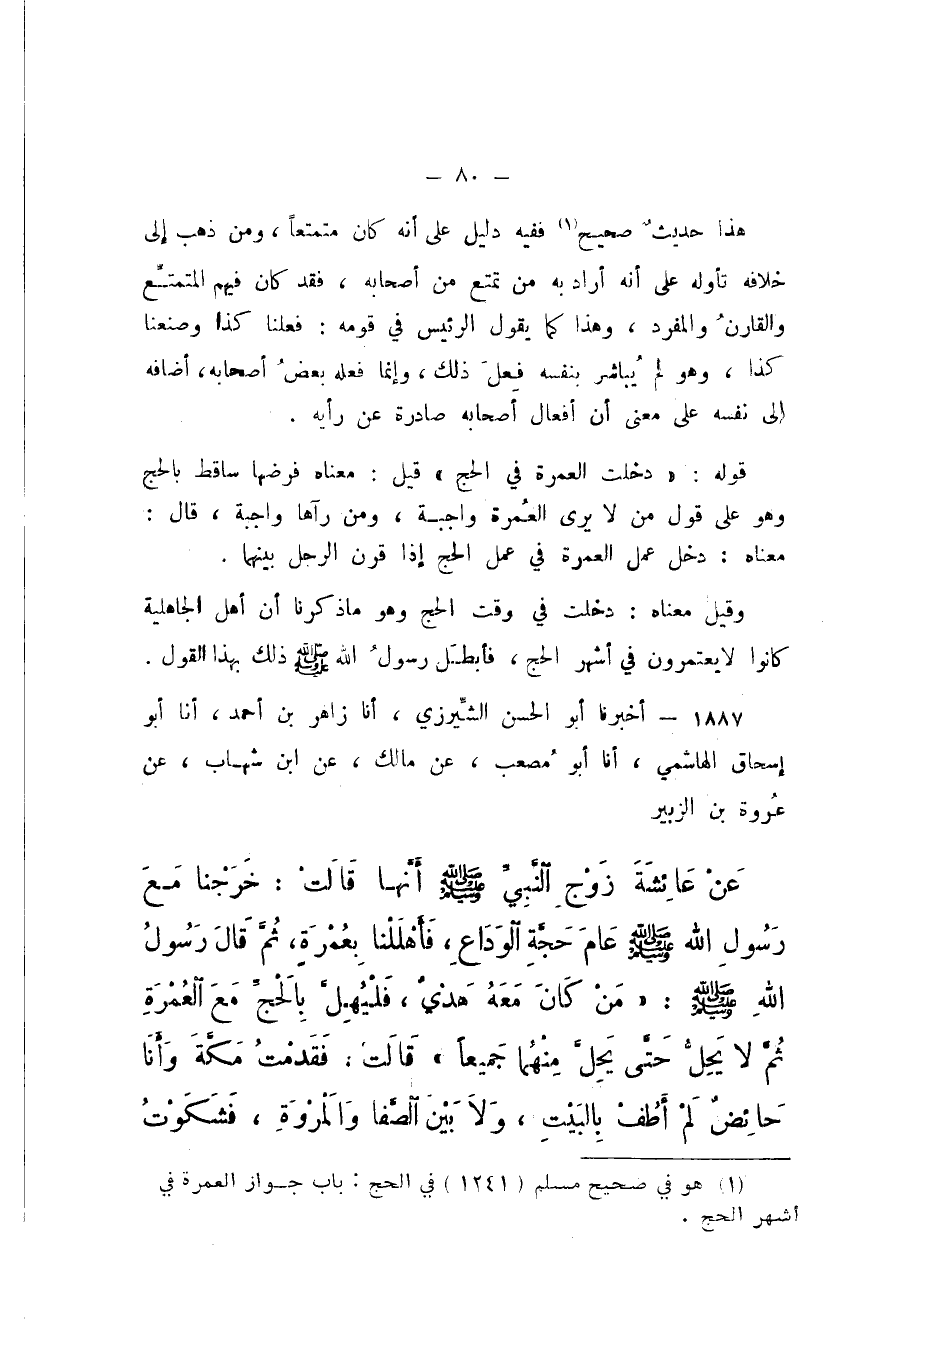 — ٨٠ —
هذا حديثٌ صحيح(١) ففيه دليل على أنه كان متمتعاً ، ومن ذهب إلى
خلافه تأوله على أنه أراد به من تمتع من أصحابه ، فقد كان فيهم المتمتّـع
والقارنُ والمفرد ، وهذا كما يقول الرئيس في قومه : فعلنا كذا وصنعنا
كذا ، وهو لم يُباشر بنفسه فِعلَ ذلك ، وإنما فعله بعضُ أصحابه، أضافه
إلى نفسه على معنى أن أفعال أصحابه صادرة عن رأيه .
قوله : « دخلت العمرة في الحج » قيل : معناه فرضها ساقط بالحج
وهو على قول من لا يرى العُمرة واجبـة ، ومن رآها واجبة ، قال :
معناه : دخل عمل العمرة في عمل الحج إذا قرن الرجل بينهما .
وقيل معناه : دخلت في وقت الحج وهو ماذكرنا أن أهل الجاهلية
كانوا لايعتمرون في أشهر الحج ، فأبطـَل رسولُ الله ﷺ ذلك بهذا القول .
١٨٨٧ — أخبرنا أبو الحسن الشِّيرزي ، أنا زاهر بن أحمد ، أنا أبو
إسحاق الهاشمي ، أنا أبو مُصعب ، عن مالك ، عن ابن شهـاب ، عن
عُروة بن الزبير
عَنْ عَائِشَةَ زَوْجِ النَّبِيِّ ﷺ أَنَّهـا قَالَتْ : خَرَجْنا مَـعَ
رَسُولِ الله ﷺ عَامَ حَجَّةِ الْوَدَاعِ ، فَأَهْلَلْنا بِعُمْرَةٍ، ثُمَّ قَالَ رَسُولُ
اللهِ ﷺ : « مَنْ كَانَ مَعَهُ هَدْيٌ ، فَلْيُهِلَّ بِالْحَجِّ مَعَ الْعُمْرَةِ
ثُمَّ لا يَحِلُّ حَتَّى يَحِلَّ مِنْهُما جَمِيعاً » قَالَتْ : فَقَدِمْتُ مَـكَّةَ وَأَنَا
حَائِضٌ لَمْ أَطُفْ بِالبَيْتِ ، وَلاَ بَيْنَ الصَّفا وَالْمَرْوَةِ ، فَشَـكَوْتُ
(١) هو في صحيح مسلم ( ١٢٤١ ) في الحج : باب جـواز العمرة في
أشهر الحج .